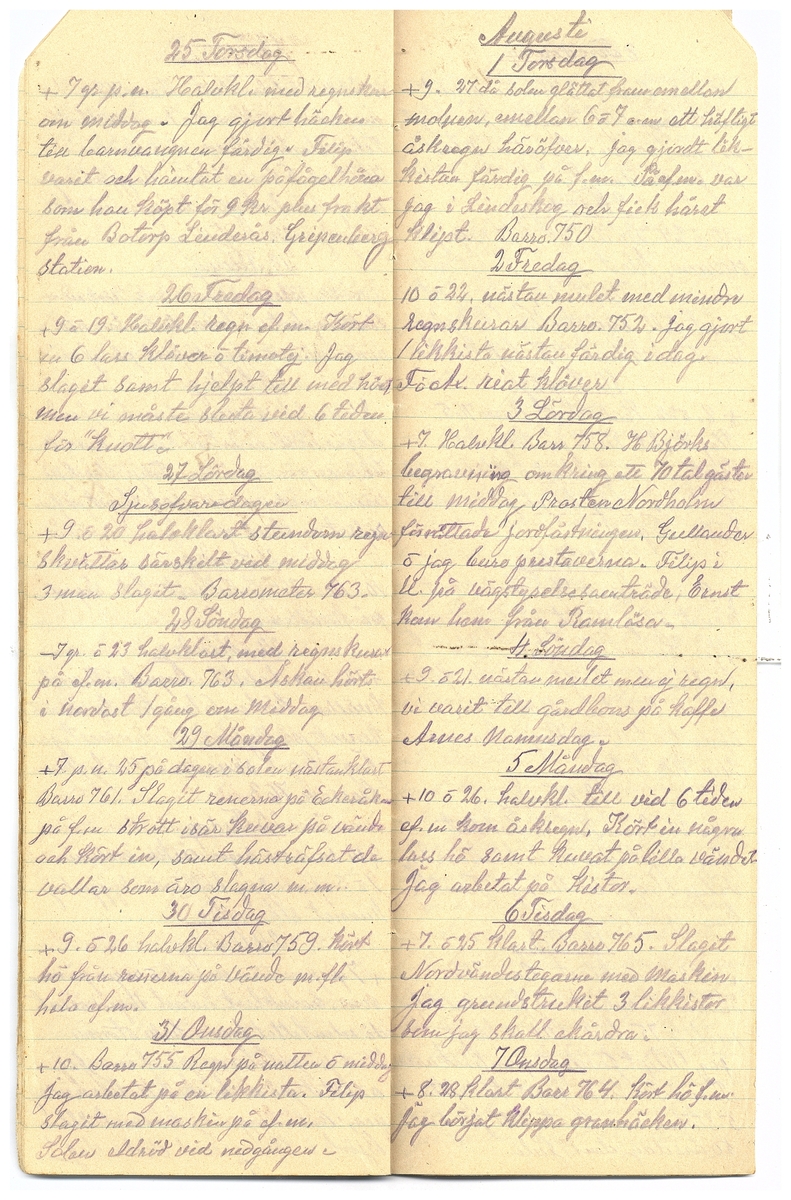 25 Torsdag
+ 7 gr. p.n. Halvkl. med regnskur
om middag. Jag gjort häcken
till barnvangnen färdig. Filip
varit och hämtat en påfågelhöna
som han köpt för 9 kr. plus frakt
från Botorp Linderås. Gripenberg
station.
26 Fredag
+9 o 19. Halvkl. regn ef.m. Kört
6 lass klöver o timotej. Jag
slaget samt hjelpt till med hö
men vi måste sluta ved 6 tiden
för "knott".
27 Lördag
Sjusofvaredagen
+ 9 o 20 halvklart stundom regn
skvättar särskilt ved middag
3 man slaget. Barrometer 763.
28 Söndag
7 gr. o 23 halvklart, med regnskurar
på ef.m. Barro. 763. Åskan hörts
i nordost 1 gång om middag
29 Måndag
+7 p.n. 25 på dagen i solen nästan klart
Barro 761. Slaget renerna på
på f.m. isär på vände
och kört in, samt hästräfsat de
vallar som äro slagna m.m.
30 Tisdag
+ 9. o 26 halvkl. Barro 759. Kört
hö från renerna på Vände m.fl.
hela ef.m.
31 Onsdag
+ 10. Barro 755 Regn på natten o middag
Jag arbetat på en likkista. Filip
slaget med maskin på ef.m.
Solen eldröd vid nedgången.
Augusti
1 Torsdag
+9. 27 då solen glättat fram emellan
molnen, emellan 6 o 7 e.m ett häftigt
åskregn häröfver. Jag gjordt lik-
kistan färdig på f.m. På ef.m. var
jag i Lindeskog och fick håret
klipt. Barro. 750
2 Fredag
10 o 22. nästan mulet med mindre
regnskurar Barro. 752. Jag gjort
1 likkista nästan färdig i dag.
klöver
3 Lördag
+7. Halvkl. Barr 758. H Björks
begravning omkring ett 70 tal gäster
till middag Prosten Nordholm
förrättade jordfästningen. Gullander
o jag buro prestaverna. Filip i
U. på vägstyrelsesamträde, Ernst
kom hem från Ramlösa.
4. Söndag
+ 9. o 21. nästan mulet men ej regn,
vi varit till gårdbons på kaffe
Arnes Namnsdag.
5 Måndag
+10 o 26. halvkl. till vid 6 tiden
ef.m kom åskregn, Kört in några
lass hö samt kuvat på lilla vändet
Jag arbetat på kistor.
6 Tisdag
+ 7. o 25 klart. Barro 765. Slaget
Nordvändestegarne med Maskin
Jag grundstruket 3 likkistor
som jag skall ekådra.
7 Onsdag
+ 8. 28 klart Barr 764. Kört hö f.m.
Jag börjat klippa granhäcken.